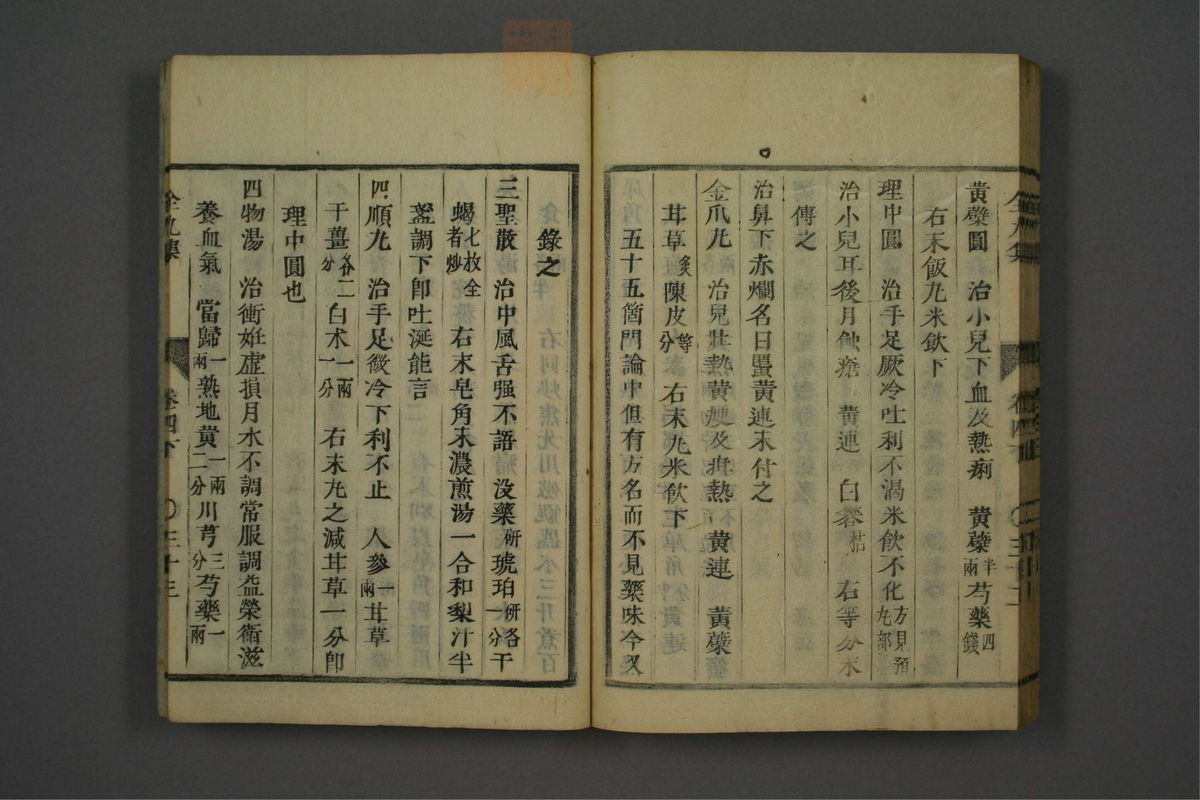 黃蘗圓 治小兒下血及熱痢 黃蘗半兩芍藥四錢
右末飯九米飮下
理中圓 治手足厥冷吐利不渴米飮不化方見預九部
治小兒耳後月蝕瘡 黃連 白礬枯 右等分末
傅之
治鼻下赤爛名曰䘌黃連末付之
金爪九 治兒壯熱黃瘦及疳熱 黃連 黃蘗
甘草炙陳皮等分 右末九米飮下
五十五箇門論中但有方名而不見藥味今又
錄之
三聖散 治中風舌强不語 沒藥研琥珀研各一分干
蝎七枚全者炒 右末皂角末濃煎湯一合和梨汁半
盞調下卽吐涎能言
四順九 治手足微冷下利不止 人參一兩甘草
干薑各二分白朮一兩一分 右末九之減甘草一分卽
理中圓也
四物湯 治衝姙虛損月水不調常服調益榮衛滋
養血氣 當歸一兩熟地黃一兩二分川芎三分芍藥一兩
全九集 卷四下 ○三十三